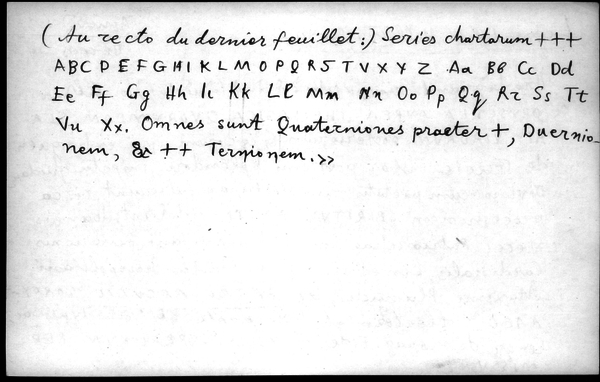 (Au recto du dernier feuillet:) Series chartarum +++
A B C D E F G H I K L M O P Q R S T V X Y Z Aa Bb Cc Dd
Ee Ff Gg Hh Ii Kk Ll Mm Nn Oo Pp Qq Rr Ss Tt
Vu Xx. Omnes sunt Quaterniones praeter +, Duernio-
nem, & ++ Ternionem.»